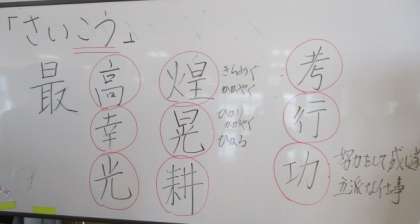 「さいこう」
最 高 煌 きらめく かがやく 考
幸 晃 かがやく 行
光 耕 功 努力をして成し
立派な仕事